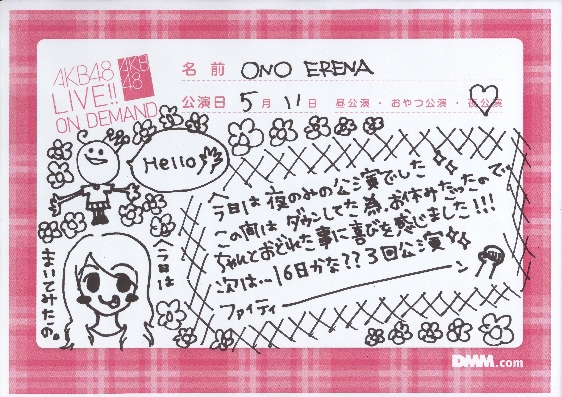 AKB48
LIVE!!
ON DEMAND
AKB
48
名前 ONO ERENA
公演日 5月11日 昼公演・おやつ公演・夜公演
Hello
今日は夜のみの公演でした
この間はダウンしてた為、お休みだったので、
ちゃんとおどれた事に喜びを感じました!!!
次は…16日かな??3回公演
ファイティーーーン
今日は
まいてみたの。
DMM.com